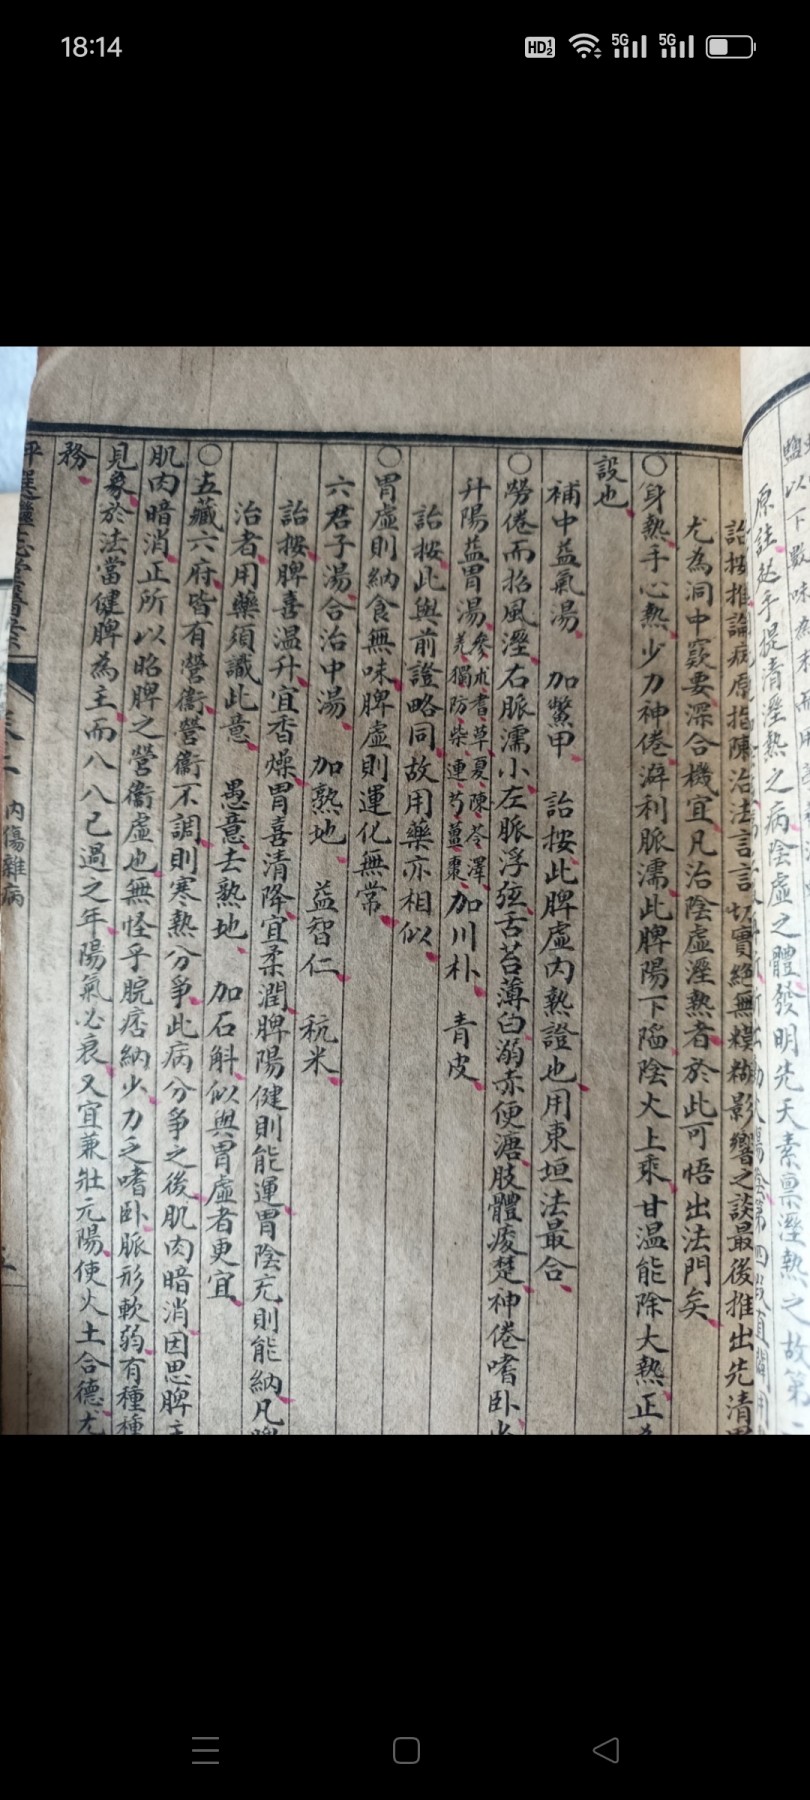 18:14
HD 1 2 5G 5G
以下數味為
原註起手提清溼熱之病陰虛之體發明先天素禀溼熱之故第
詒按推論病原指陳治法言言切實絕無糢糊影響之談最後推出先清
尤為洞中窾要深合機宜凡治陰虛溼熱者於此可悟出法門矣
○身熱手心熱少力神倦澼利脈濡此脾陽下陷陰火上乘甘温能除大熱正
設也
補中益氣湯 加鱉甲 詒按此脾虛內熱證也用東垣法最合
○勞倦而招風溼右脈濡小左脈浮弦舌苔薄白溺赤便溏肢體痠楚神倦嗜卧
升陽益胃湯參朮耆草夏陳苓澤羌獨防柴連芍薑棗加川朴 青皮
詒按此與前證略同故用藥亦相似
○胃虛則納食無味脾虛則運化無常
六君子湯合治中湯 加熟地 益智仁 秔米
詒按脾喜温升宜香燥胃喜清降宜柔潤脾陽健則能運胃陰充則能納凡
治者用藥須識此意 愚意去熟地 加石斛似與胃虛者更宜
○五藏六府皆有營衞營衞不調則寒熱分爭此病分爭之後肌肉暗消因思脾主
肌肉暗消正所以昭脾之營衞虛也無怪乎脘痞納少力乏嗜卧脈形軟弱有種種
見象於法當健脾為主而八八已過之年陽氣必衰又宜兼壯元陽使火土合德尤
務
評選繼志堂醫案 卷二 內傷雜病